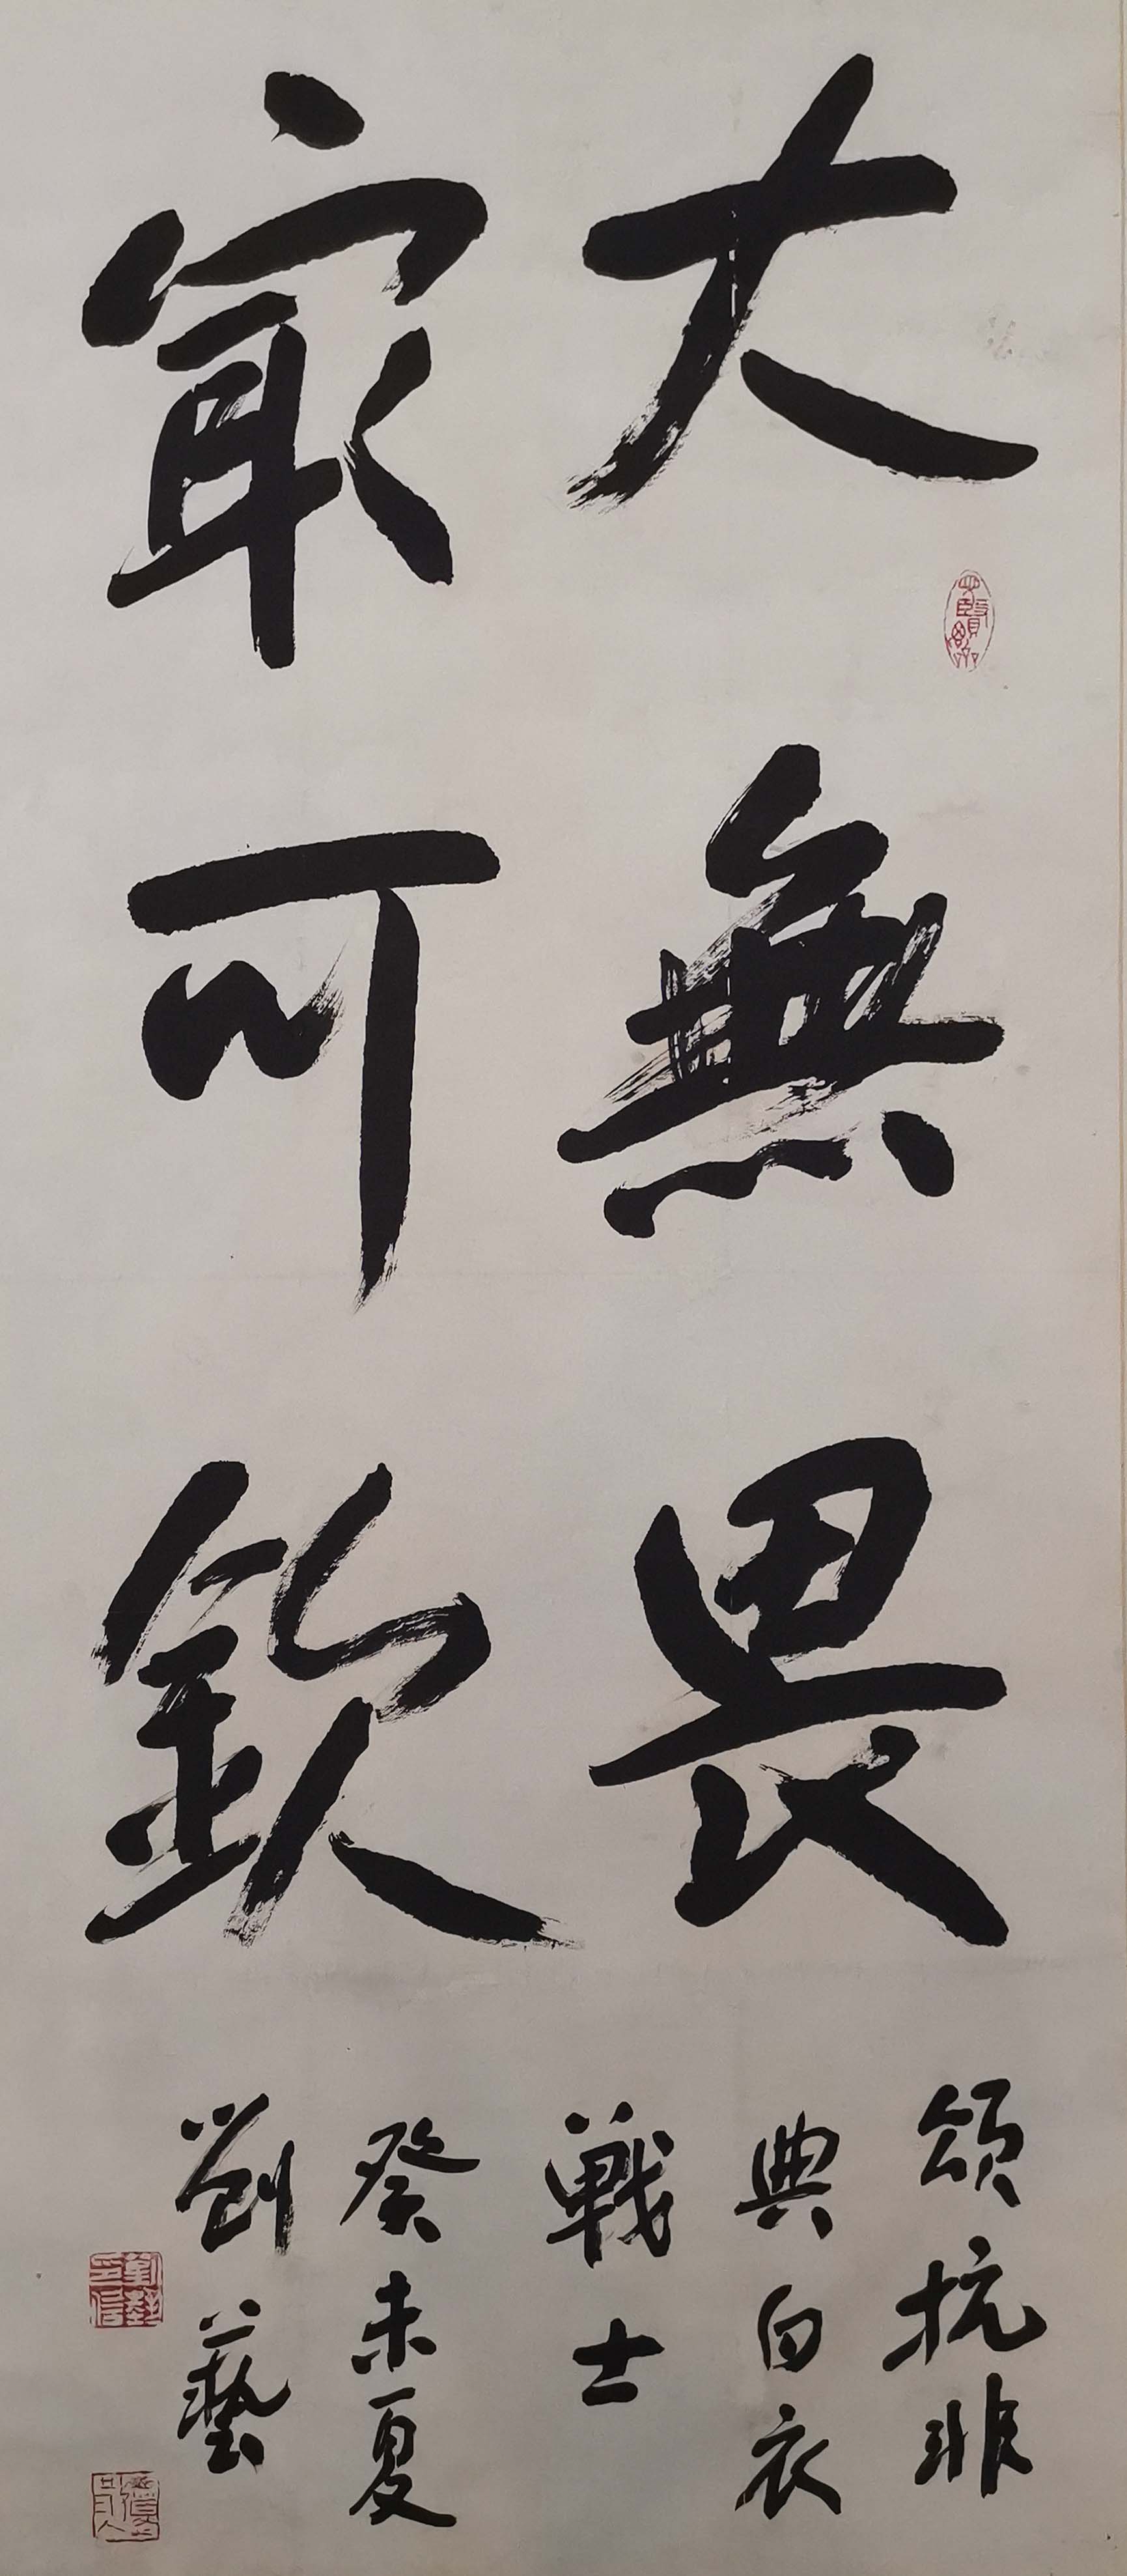 大無畏
冣可欽
頌抗非
典白衣
戰士
癸未夏
劉藝